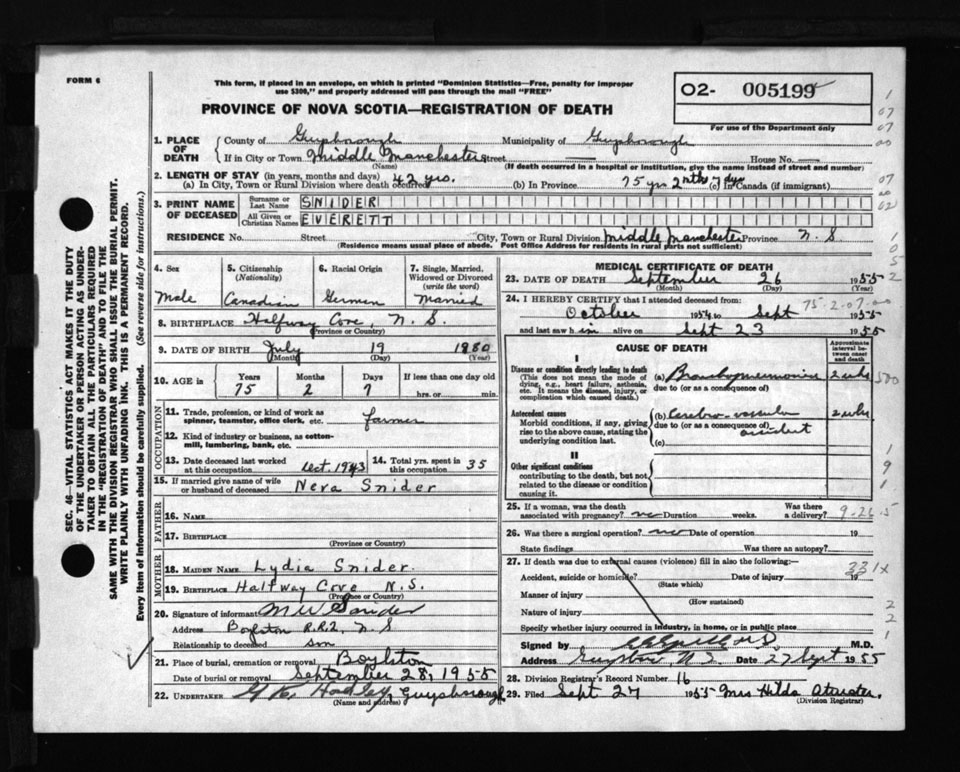 FORM 6
This form, if placed in an envelope, on which is printed "Dominion Statistics—Free, penalty for improper
use $300," and properly addressed will pass through the mail "FREE"
O2- 005199
For use of the Department only
PROVINCE OF NOVA SCOTIA—REGISTRATION OF DEATH
1. PLACE OF DEATH
County of Guysborough Municipality of Guysborough
If in City or Town Middle Manchester Street — House No. —
(Name) (If death occurred in a hospital or institution, give the name instead of street and number)
2. LENGTH OF STAY (in years, months and days)
(a) In City, Town or Rural Division where death occurred 42 yrs. (b) In Province 75 yrs 2 mths 7 dys (c) In Canada (if immigrant)
3. PRINT NAME OF DECEASED
Surname or Last Name SNIDER
All Given or Christian Names EVERETT
RESIDENCE No. Street City, Town or Rural Division Middle Manchester Province N. S
(Residence means usual place of abode. Post Office Address for residents in rural parts not sufficient)
4. Sex Male
5. Citizenship (Nationality) Canadian
6. Racial Origin German
7. Single, Married, Widowed or Divorced (write the word) Married
8. BIRTHPLACE Halfway Cove, N. S.
(Province or Country)
9. DATE OF BIRTH July 19 1880
(Month) (Day) (Year)
10. AGE in Years Months Days If less than one day
75 2 7 hrs. or min.
OCCUPATION
11. Trade, profession, or kind of work as
spinner, teamster, office clerk, etc. farmer
12. Kind of industry or business, as cotton-
mill, lumbering, bank, etc.
13. Date deceased last worked
at this occupation Oct. 1943
14. Total yrs. spent in
this occupation 35
15. If married give name of wife
or husband of deceased Neva Snider
FATHER
16. NAME
17. BIRTHPLACE
(Province or Country)
MOTHER
18. MAIDEN NAME Lydia Snider.
19. BIRTHPLACE Halfway Cove N.S.
(Province or Country)
20. Signature of informant M W Snider
Address Boylston R.R.2, N S
Relationship to deceased son
21. Place of burial, cremation or removal Boylston
Date of burial or removal September 28, 1955
22. UNDERTAKER Hadley, Guysborough
(Name and address)
MEDICAL CERTIFICATE OF DEATH
23. DATE OF DEATH September 26 1955
(Month) (Day)
24. I HEREBY CERTIFY that I attended deceased from 75-2-07-00
October 1954 to Sept 1955
and last saw h im alive on Sept 23 1955
CAUSE OF DEATH
Approximate interval between onset and death
I
Disease or condition directly leading to death
(This does not mean the mode of dying, e.g., heart failure, asthenia, etc. It means the disease, injury, or complication which caused death.)
(a) Bronchopneumonia 2 wks
due to (or as a consequence of)
Antecedent causes
Morbid conditions, if any, giving rise to the above cause, stating the underlying condition last.
(b) Cerebro-vascular 2 wks
due to (or as a consequence of)
accident
(c)
II
Other significant conditions
contributing to the death, but not related to the disease or condition causing it.
25. If a woman, was the death
associated with pregnancy? no Duration weeks. Was there a delivery? 9-26-5
26. Was there a surgical operation? no Date of operation 19
State findings Was there an autopsy?
27. If death was due to external causes (violence) fill in also the following: 331x
Accident, suicide or homicide? Date of injury 19
(State which)
Manner of injury
(How sustained)
Nature of injury
Specify whether injury occurred in industry, in home, or in public place
Signed by M.D.
Address Guysboro, N.S. Date 27 Sept 1955
28. Division Registrar's Record Number 16
29. Filed Sept 27 1955 Mrs Hilda
(Division Registrar)
SEC. 46—VITAL STATISTICS ACT MAKES IT THE DUTY
OF THE UNDERTAKER OR PERSON ACTING AS UNDER-
TAKER TO OBTAIN ALL THE PARTICULARS REQUIRED
IN THE "REGISTRATION OF DEATH" AND TO FILE THE
SAME WITH THE DIVISION REGISTRAR WHO SHALL ISSUE THE BURIAL PERMIT.
WRITE PLAINLY WITH UNFADING INK. THIS IS A PERMANENT RECORD.
Every item of information should be carefully supplied. (See reverse side for instructions.)